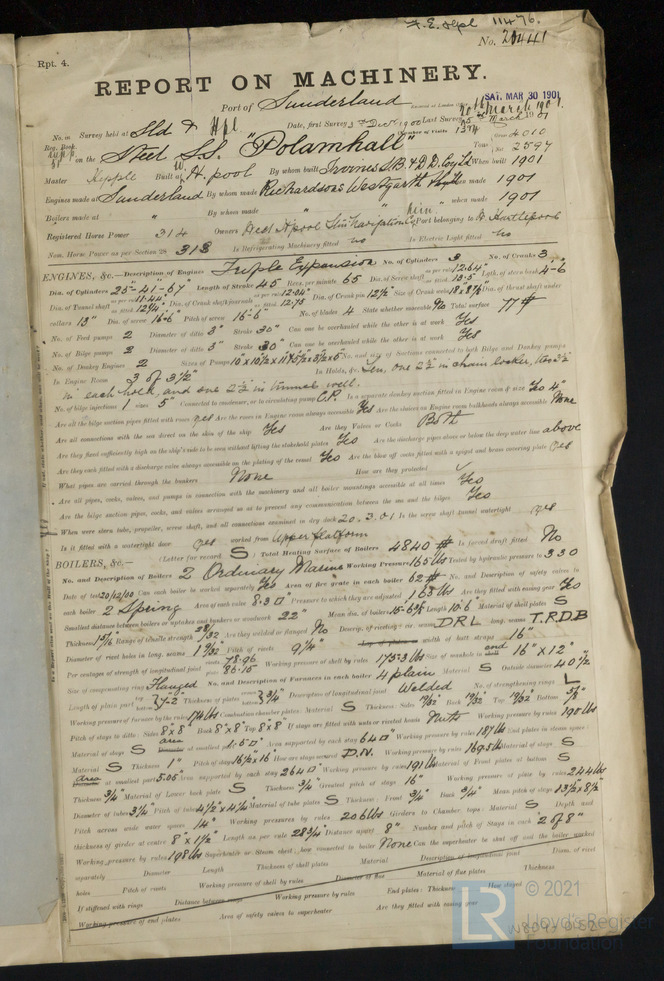 F. E. Hpl 11476.
No. 20441
Rpt. 4.
REPORT ON MACHINERY.
Port of Sunderland
SAT. MAR 30 1901
No. in Survey held at Sld & Hpl Date, first Survey 3rd Decr 1900 Last Survey
Reg. Book.
on the Steel S.S. "Polamhall"
Gross 4010
Tons Net 2597
Master Kepple Built at W. Hpool By whom built Irvines S.B. & D.D. Coy Ld When built 1901
Engines made at Sunderland By whom made Richardsons Westgarth when made 1901
Boilers made at " By whom made " when made 1901
Registered Horse Power 314 Owners West Hpool Stm Navigation Co Port belonging to W. Hartlepool
Nom. Horse Power as per Section 28 313 Is Refrigerating Machinery fitted no Is Electric Light fitted no
ENGINES, &c.—Description of Engines Triple Expansion No. of Cylinders 3 No. of Cranks 3
Dia. of Cylinders 25"-41"-67" Length of Stroke 45 Revs. per minute 65 Dia. of Screw shaft as per rule 12.64" as fitted 13.5" Lgth. of stern bush 4'-6"
Dia. of Tunnel shaft as per rule 11.44" as fitted 12¼" Dia. of Crank shaft journals as per rule 12.04" as fitted 12.75 Dia. of Crank pin 12½" Size of Crank webs 18x8⅛" Dia. of thrust shaft under
collars 13" Dia. of screw 16'-6" Pitch of screw 16'-6" No. of blades 4 State whether moveable No Total surface 77 #
No. of Feed pumps 2 Diameter of ditto 3" Stroke 30" Can one be overhauled while the other is at work Yes
No. of Bilge pumps 2 Diameter of ditto 3" Stroke 30" Can one be overhauled while the other is at work Yes
No. of Donkey Engines 2 Sizes of Pumps No. and size of Suctions connected to both Bilge and Donkey pumps
In Engine Room 3 of 3½" In Holds, &c. one 2½" in chain locker, two 2½"
in each hold, and one 2½" in tunnel well.
No. of bilge injections 1 sizes 5" Connected to condenser, or to circulating pump C.P. Is a separate donkey suction fitted in Engine room & size Yes 4"
Are all the bilge suction pipes fitted with roses Yes Are the roses in Engine room always accessible Yes Are the sluices on Engine room bulkheads always accessible None
Are all connections with the sea direct on the skin of the ship Yes Are they Valves or Cocks Both
Are they fixed sufficiently high on the ship's side to be seen without lifting the stokehold plates Yes Are the discharge pipes above or below the deep water line above
Are they each fitted with a discharge valve always accessible on the plating of the vessel Yes Are the blow off cocks fitted with a spigot and brass covering plate Yes
What pipes are carried through the bunkers None How are they protected
Are all pipes, cocks, valves, and pumps in connection with the machinery and all boiler mountings accessible at all times Yes
Are the bilge suction pipes, cocks, and valves arranged so as to prevent any communication between the sea and the bilges Yes
When were stern tube, propeller, screw shaft, and all connections examined in dry dock 20.3.01 Is the screw shaft tunnel watertight Yes
Is it fitted with a watertight door Yes worked from Upper platform
BOILERS, &c.— (Letter for record S) Total Heating Surface of Boilers 4840 # Is forced draft fitted No
No. and Description of Boilers 2 Ordinary Marine Working Pressure 165 lbs Tested by hydraulic pressure to 330
Date of test 20/12/00 Can each boiler be worked separately Yes Area of fire grate in each boiler 62 # No. and Description of safety valves to
each boiler 2 Spring Area of each valve 8.30" Pressure to which they are adjusted 168 lbs Are they fitted with easing gear Yes
Smallest distance between boilers or uptakes and bunkers or woodwork 22" Mean dia. of boilers Length 10.6 Material of shell plates S
Thickness 1 5/16" Range of tensile strength 28/32 Are they welded or flanged No Descrip. of riveting: cir. seams D R L long. seams T.R.D.B
Diameter of rivet holes in long. seams 1 9/32 Pitch of rivets 9¼" width of butt straps 16"
Per centages of strength of longitudinal joint rivets 78.96 plate 86.15 Working pressure of shell by rules 175.3 lbs Size of manhole in end 16" x 12"
Size of compensating ring Flanged No. and Description of Furnaces in each boiler 4 plain Material S Outside diameter 40½"
Length of plain part top bottom 7'-2" Thickness of plates crown bottom ¾" Description of longitudinal joint Welded No. of strengthening rings L
Working pressure of furnace by the rules 174 lbs Combustion chamber plates: Material S Thickness: Sides 19/32" Back 19/32" Top 19/32" Bottom ⅝"
Pitch of stays to ditto: Sides 8"x8" Back 8"x8" Top 8"x8" If stays are fitted with nuts or riveted heads Nuts Working pressure by rules 190 lbs
Material of stays S area at smallest part Area supported by each stay 64 □" Working pressure by rules 187 lbs End plates in steam space:
Material S Thickness 1" Pitch of stays 16½"x16" How are stays secured D.N. Working pressure by rules 169.5 lbs Material of stays S
Area at smallest part 5.05 Area supported by each stay 264 □" Working pressure by rules 191 lbs Material of Front plates at bottom S
Thickness ¾" Material of Lower back plate S Thickness ¾" Greatest pitch of stays 16" Working pressure of plate by rules 244 lbs
Diameter of tubes 3¼" Pitch of tubes 4½"x4¼" Material of tube plates S Thickness: Front ¾" Back ¾" Mean pitch of stays
Pitch across wide water spaces 14" Working pressures by rules 206 lbs Girders to Chamber tops: Material S Depth and
thickness of girder at centre 8"x1½" Length as per rule 28¾" Distance apart 8" Number and pitch of Stays in each 2 of 8"
Working pressure by rules 198 lbs Superheater or Steam chest; how connected to boiler None Can the superheater be shut off and the boiler worked
separately Diameter Length Thickness of shell plates Material Description of longitudinal joint Diam. of rivet
holes Pitch of rivets Working pressure of shell by rules Diameter of flue Material of flue plates Thickness
If stiffened with rings Distance between rings Working pressure by rules End plates: Thickness How stayed
Working pressure of end plates Area of safety valves to superheater Are they fitted with easing gear
© 2021
LR Lloyd's Register
Foundation